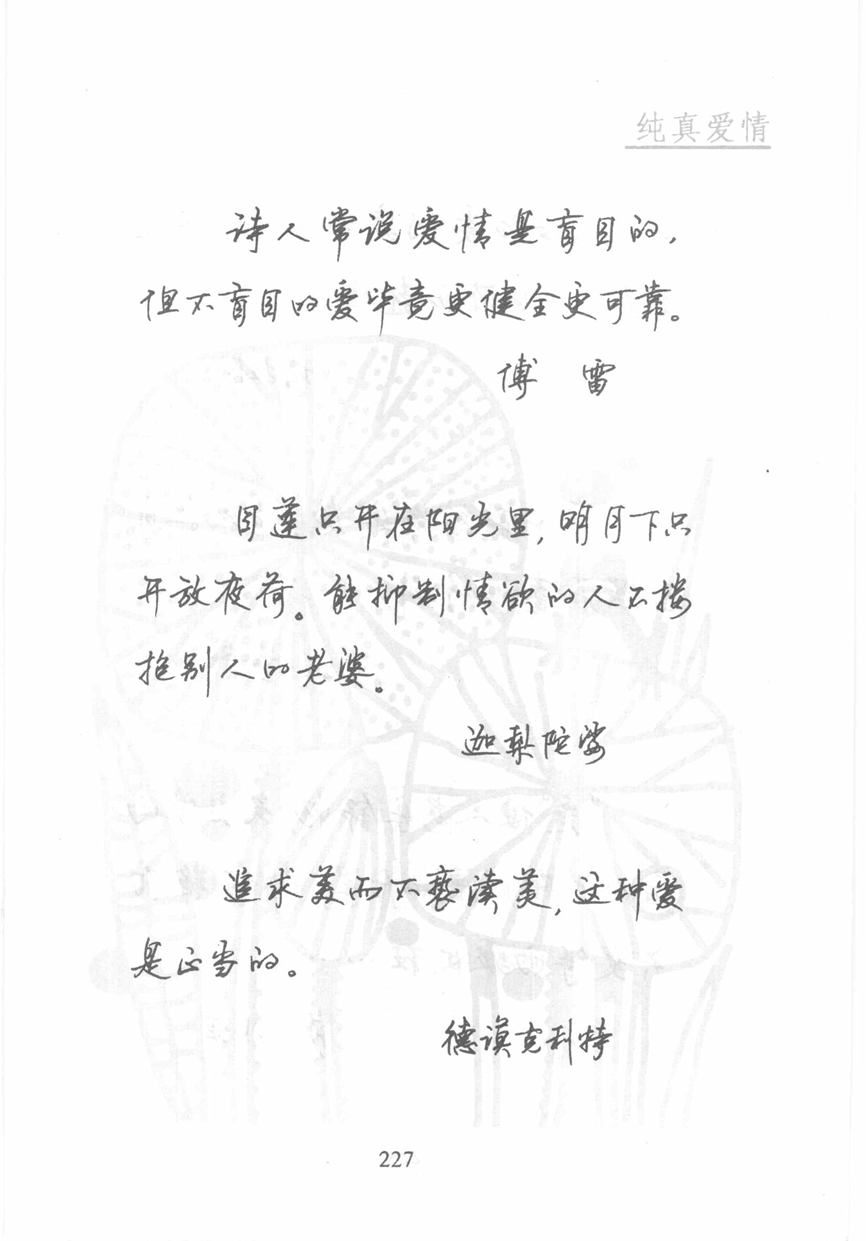 纯真爱情
诗人常说爱情是盲目的，
但不盲目的爱毕竟更健全更可靠。
傅 雷
日莲只开在阳光里，明月下只
开放夜荷。能抑制情欲的人不搂
抱别人的老婆。
迦梨陀娑
追求美而不亵渎美，这种爱
是正当的。
德谟克利特
227